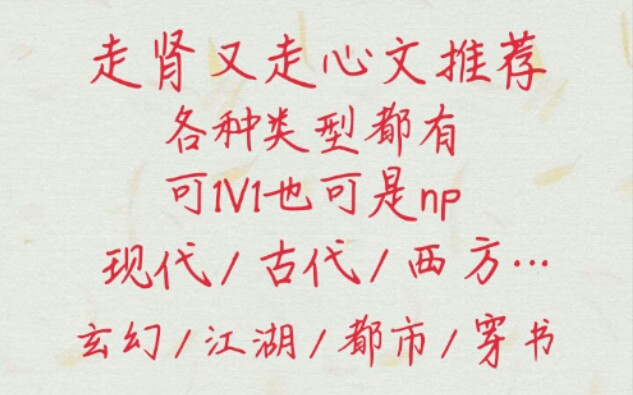 走肾又走心文推荐
各种类型都有
可1V1也可是np
现代/古代/西方…
玄幻/江湖/都市/穿书